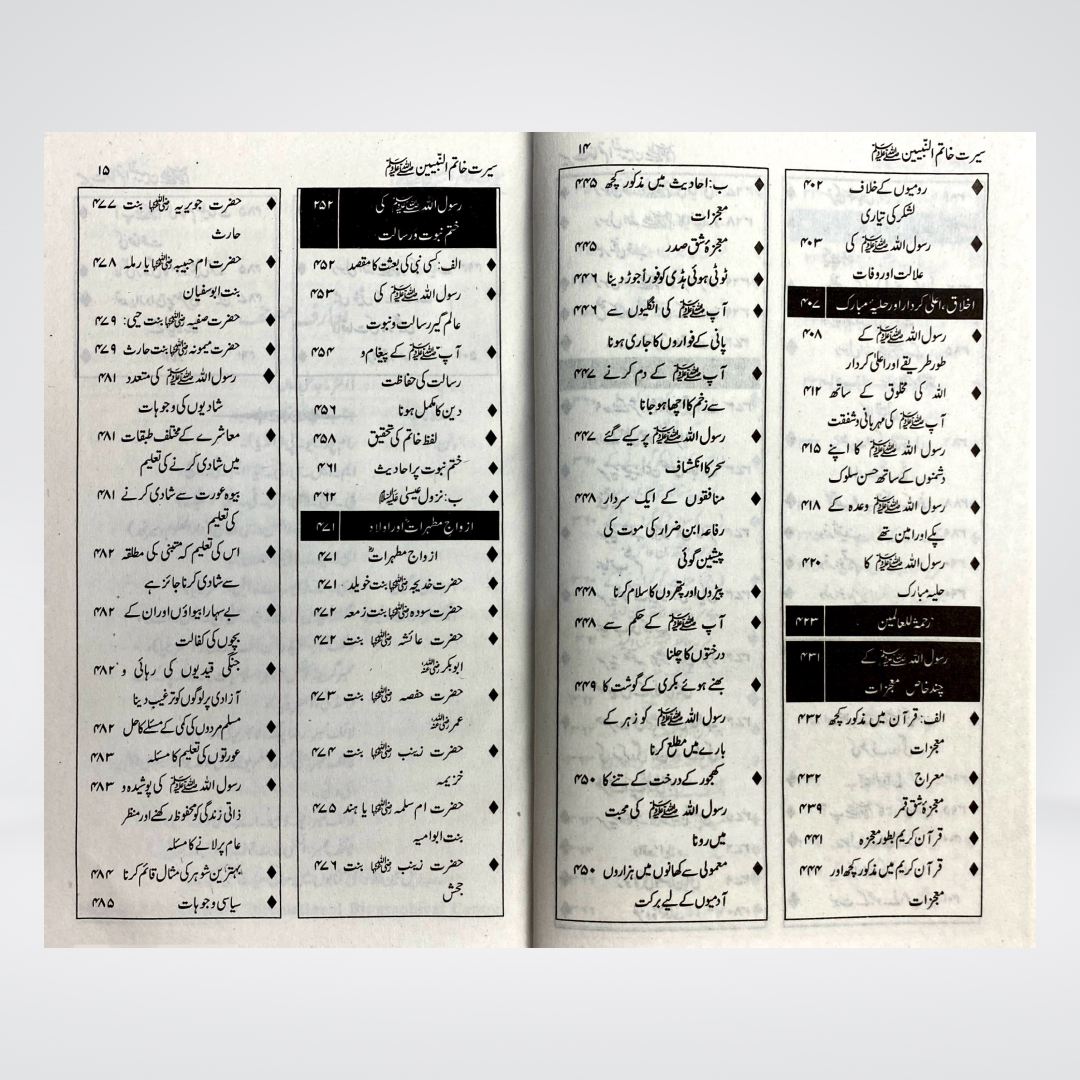 سیرت خاتم النّبیین ﷺ ۱۴
رومیوں کے خلاف ۴۰۲
لشکر کی تیاری
رسول اللہ ﷺ کی ۴۰۳
علالت اور وفات
اخلاق، اعلیٰ کردار اور حلیۂ مبارک ۴۰۷
رسول اللہ ﷺ کے ۴۰۸
طور طریقے اور اعلیٰ کردار
اللہ کی مخلوق کے ساتھ ۴۱۲
آپ ﷺ کی مہربانی و شفقت
رسول اللہ ﷺ کا اپنے ۴۱۵
دشمنوں کے ساتھ حسن سلوک
رسول اللہ ﷺ وعدہ کے ۴۱۸
پکے اور امین تھے
رسول اللہ ﷺ کا ۴۲۰
حلیہ مبارک
رحمۃ للعالمین ۴۲۳
رسول اللہ ﷺ کے ۴۳۱
چند خاص معجزات
الف: قرآن میں مذکور کچھ ۴۳۲
معجزات
معراج ۴۳۲
معجزۂ شق قمر ۴۳۹
قرآن کریم بطور معجزہ ۴۴۱
قرآن کریم میں مذکور کچھ اور ۴۴۴
معجزات
ب: احادیث میں مذکور کچھ ۴۴۵
معجزات
معجزۂ شق صدر ۴۴۵
ٹوٹی ہوئی ہڈی کو فوراً جوڑ دینا ۴۴۶
آپ ﷺ کی انگلیوں سے ۴۴۶
پانی کے فواروں کا جاری ہونا
آپ ﷺ کے دم کرنے ۴۴۷
سے زخم کا اچھا ہو جانا
رسول اللہ ﷺ پر کیے گئے ۴۴۷
سحر کا انکشاف
منافقوں کے ایک سردار ۴۴۸
رفاعہ ابن ضرار کی موت کی
پیشین گوئی
پیڑوں اور پتھروں کا سلام کرنا ۴۴۸
آپ ﷺ کے حکم سے ۴۴۸
درختوں کا چلنا
بھنے ہوئے بکری کے گوشت کا ۴۴۹
رسول اللہ ﷺ کو زہر کے
بارے میں مطلع کرنا
کھجور کے درخت کے تنے کا ۴۵۰
رسول اللہ ﷺ کی محبت
میں رونا
معمولی سے کھانوں میں ہزاروں ۴۵۰
آدمیوں کے لیے برکت
سیرت خاتم النّبیین ﷺ ۱۵
رسول اللہ ﷺ کی ۲۵۲
ختم نبوت و رسالت
الف: کسی نبی کی بعثت کا مقصد ۴۵۲
رسول اللہ ﷺ کی ۴۵۳
عالم گیر رسالت و نبوت
آپ ﷺ کے پیغام و ۴۵۴
رسالت کی حفاظت
دین کا مکمل ہونا ۴۵۶
لفظ خاتم کی تحقیق ۴۵۸
ختم نبوت پر احادیث ۴۶۱
ب: نزول عیسیٰ علیہ السلام ۴۶۲
ازواج مطہراتؓ اور اولاد ۴۷۱
ازواج مطہراتؓ ۴۷۱
حضرت خدیجہ رضی اللہ عنہا بنت خویلد ۴۷۱
حضرت سودہ رضی اللہ عنہا بنت زمعہ ۴۷۲
حضرت عائشہ رضی اللہ عنہا بنت ۴۷۲
ابوبکر رضی اللہ عنہ
حضرت حفصہ رضی اللہ عنہا بنت ۴۷۳
عمر رضی اللہ عنہ
حضرت زینب رضی اللہ عنہا بنت ۴۷۴
خزیمہ
حضرت ام سلمہ رضی اللہ عنہا یا ہند ۴۷۵
بنت ابوامیہ
حضرت زینب رضی اللہ عنہا بنت ۴۷۶
جحش
حضرت جویریہ رضی اللہ عنہا بنت ۴۷۷
حارث
حضرت ام حبیبہ رضی اللہ عنہا یا رملہ ۴۷۸
بنت ابوسفیان
حضرت صفیہ رضی اللہ عنہا بنت حیی: ۴۷۹
حضرت میمونہ رضی اللہ عنہا بنت حارث ۴۷۹
رسول اللہ ﷺ کی متعدد ۴۸۱
شادیوں کی وجوہات
معاشرے کے مختلف طبقات ۴۸۱
میں شادی کرنے کی تعلیم
بیوہ عورت سے شادی کرنے ۴۸۱
کی تعلیم
اس کی تعلیم کہ متبنی کی مطلقہ ۴۸۲
سے شادی کرنا جائز ہے
بے سہارا بیواؤں اور ان کے ۴۸۲
بچوں کی کفالت
جنگی قیدیوں کی رہائی و ۴۸۲
آزادی پر لوگوں کو ترغیب دینا
مسلم مردوں کی کمی کے مسئلے کا حل ۴۸۲
عورتوں کی تعلیم کا مسئلہ ۴۸۳
رسول اللہ ﷺ کی پوشیدہ و ۴۸۳
ذاتی زندگی کو محفوظ رکھنے اور منظر
عام پر لانے کا مسئلہ
بہترین شوہر کی مثال قائم کرنا ۴۸۴
سیاسی وجوہات ۴۸۵